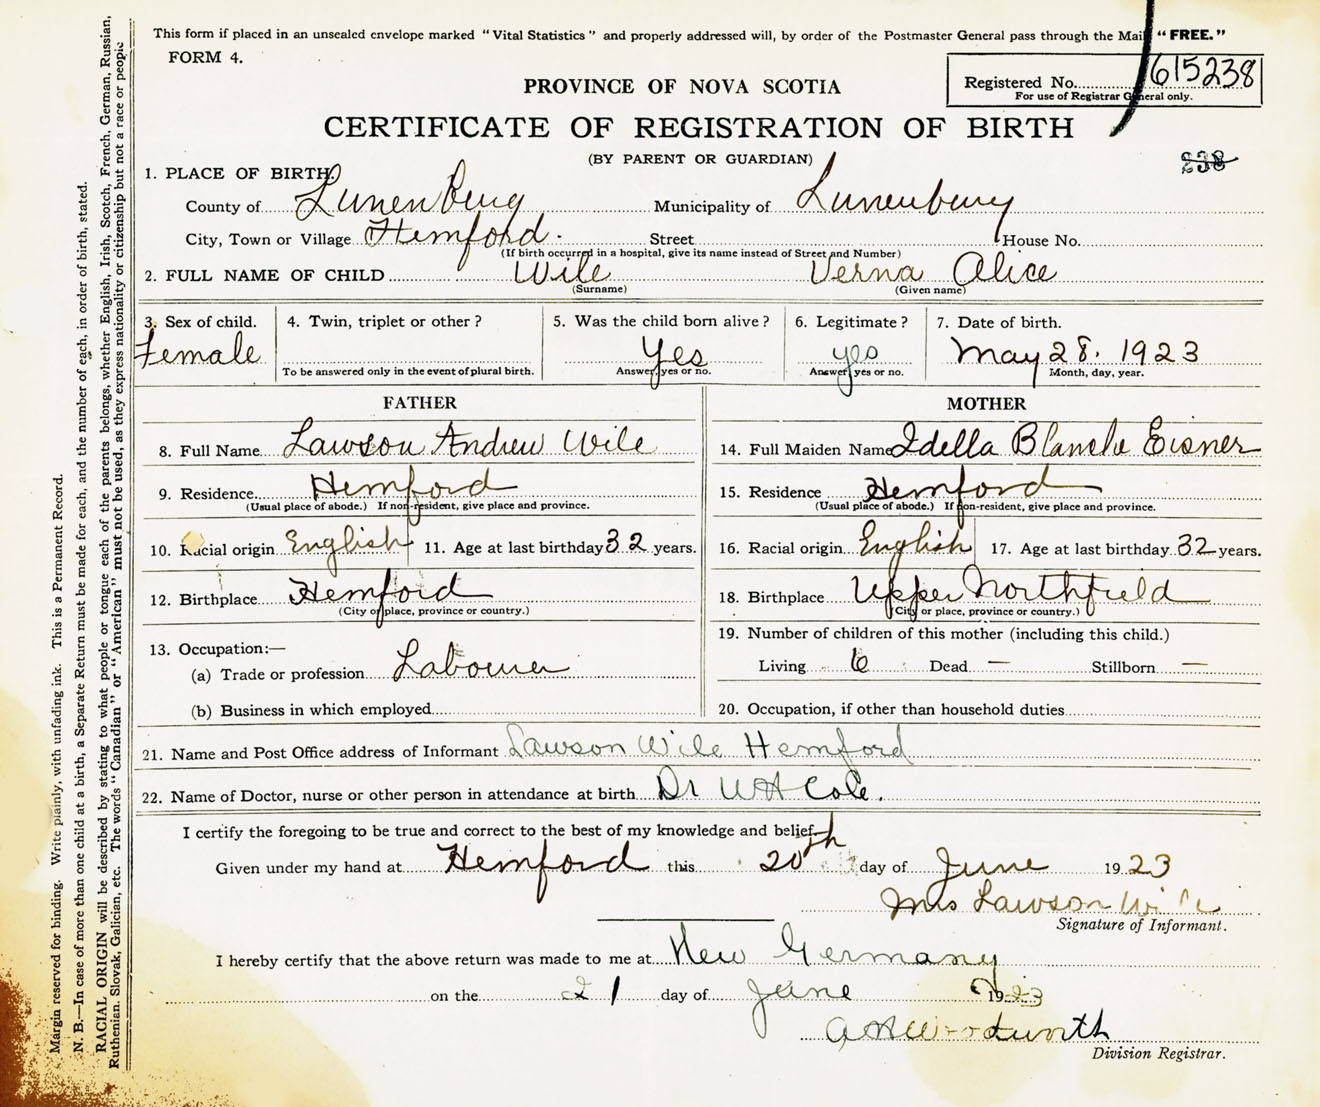 This form if placed in an unsealed envelope marked "Vital Statistics" and properly addressed will, by order of the Postmaster General pass through the Mail "FREE."
FORM 4.
PROVINCE OF NOVA SCOTIA
Registered No. 615238
For use of Registrar General only.
CERTIFICATE OF REGISTRATION OF BIRTH
(BY PARENT OR GUARDIAN)
238
1. PLACE OF BIRTH.
County of Lunenburg Municipality of Lunenburg
City, Town or Village Hemford. Street House No.
(If birth occurred in a hospital, give its name instead of Street and Number)
2. FULL NAME OF CHILD Wile Verna Alice
(Surname) (Given name)
3. Sex of child. 4. Twin, triplet or other? 5. Was the child born alive? 6. Legitimate? 7. Date of birth.
Female Yes yes May 28. 1923
To be answered only in the event of plural birth. Answer, yes or no. Answer yes or no. Month, day, year.
FATHER MOTHER
8. Full Name Lawson Andrew Wile 14. Full Maiden Name Idella Blanche Eisner
9. Residence. Hemford 15. Residence Hemford
(Usual place of abode.) If non-resident, give place and province. (Usual place of abode.) If non-resident, give place and province.
10. Racial origin English 11. Age at last birthday 32 years. 16. Racial origin English 17. Age at last birthday 32 years.
12. Birthplace Hemford 18. Birthplace Upper Northfield
(City or place, province or country.) (City or place, province or country.)
13. Occupation:— 19. Number of children of this mother (including this child.)
(a) Trade or profession Labourer Living 6 Dead — Stillborn —
(b) Business in which employed 20. Occupation, if other than household duties
21. Name and Post Office address of Informant Lawson Wile Hemford
22. Name of Doctor, nurse or other person in attendance at birth Dr W H Cole.
I certify the foregoing to be true and correct to the best of my knowledge and belief.
Given under my hand at Hemford this 20th day of June 1923
Mrs Lawson Wile
Signature of Informant.
I hereby certify that the above return was made to me at New Germany
on the 21 day of June 1923
Woodworth
Division Registrar.
Margin reserved for binding. Write plainly, with unfading ink. This is a Permanent Record.
N. B.—In case of more than one child at a birth, a Separate Return must be made for each, and the number of each, in order of birth, stated.
RACIAL ORIGIN will be described by stating to what people or tongue each of the parents belongs, whether English, Irish, Scotch, French, German, Russian,
Ruthenian. Slovak, Galician, etc. The words "Canadian" or "American" must not be used, as they express nationality or citizenship but not a race or people